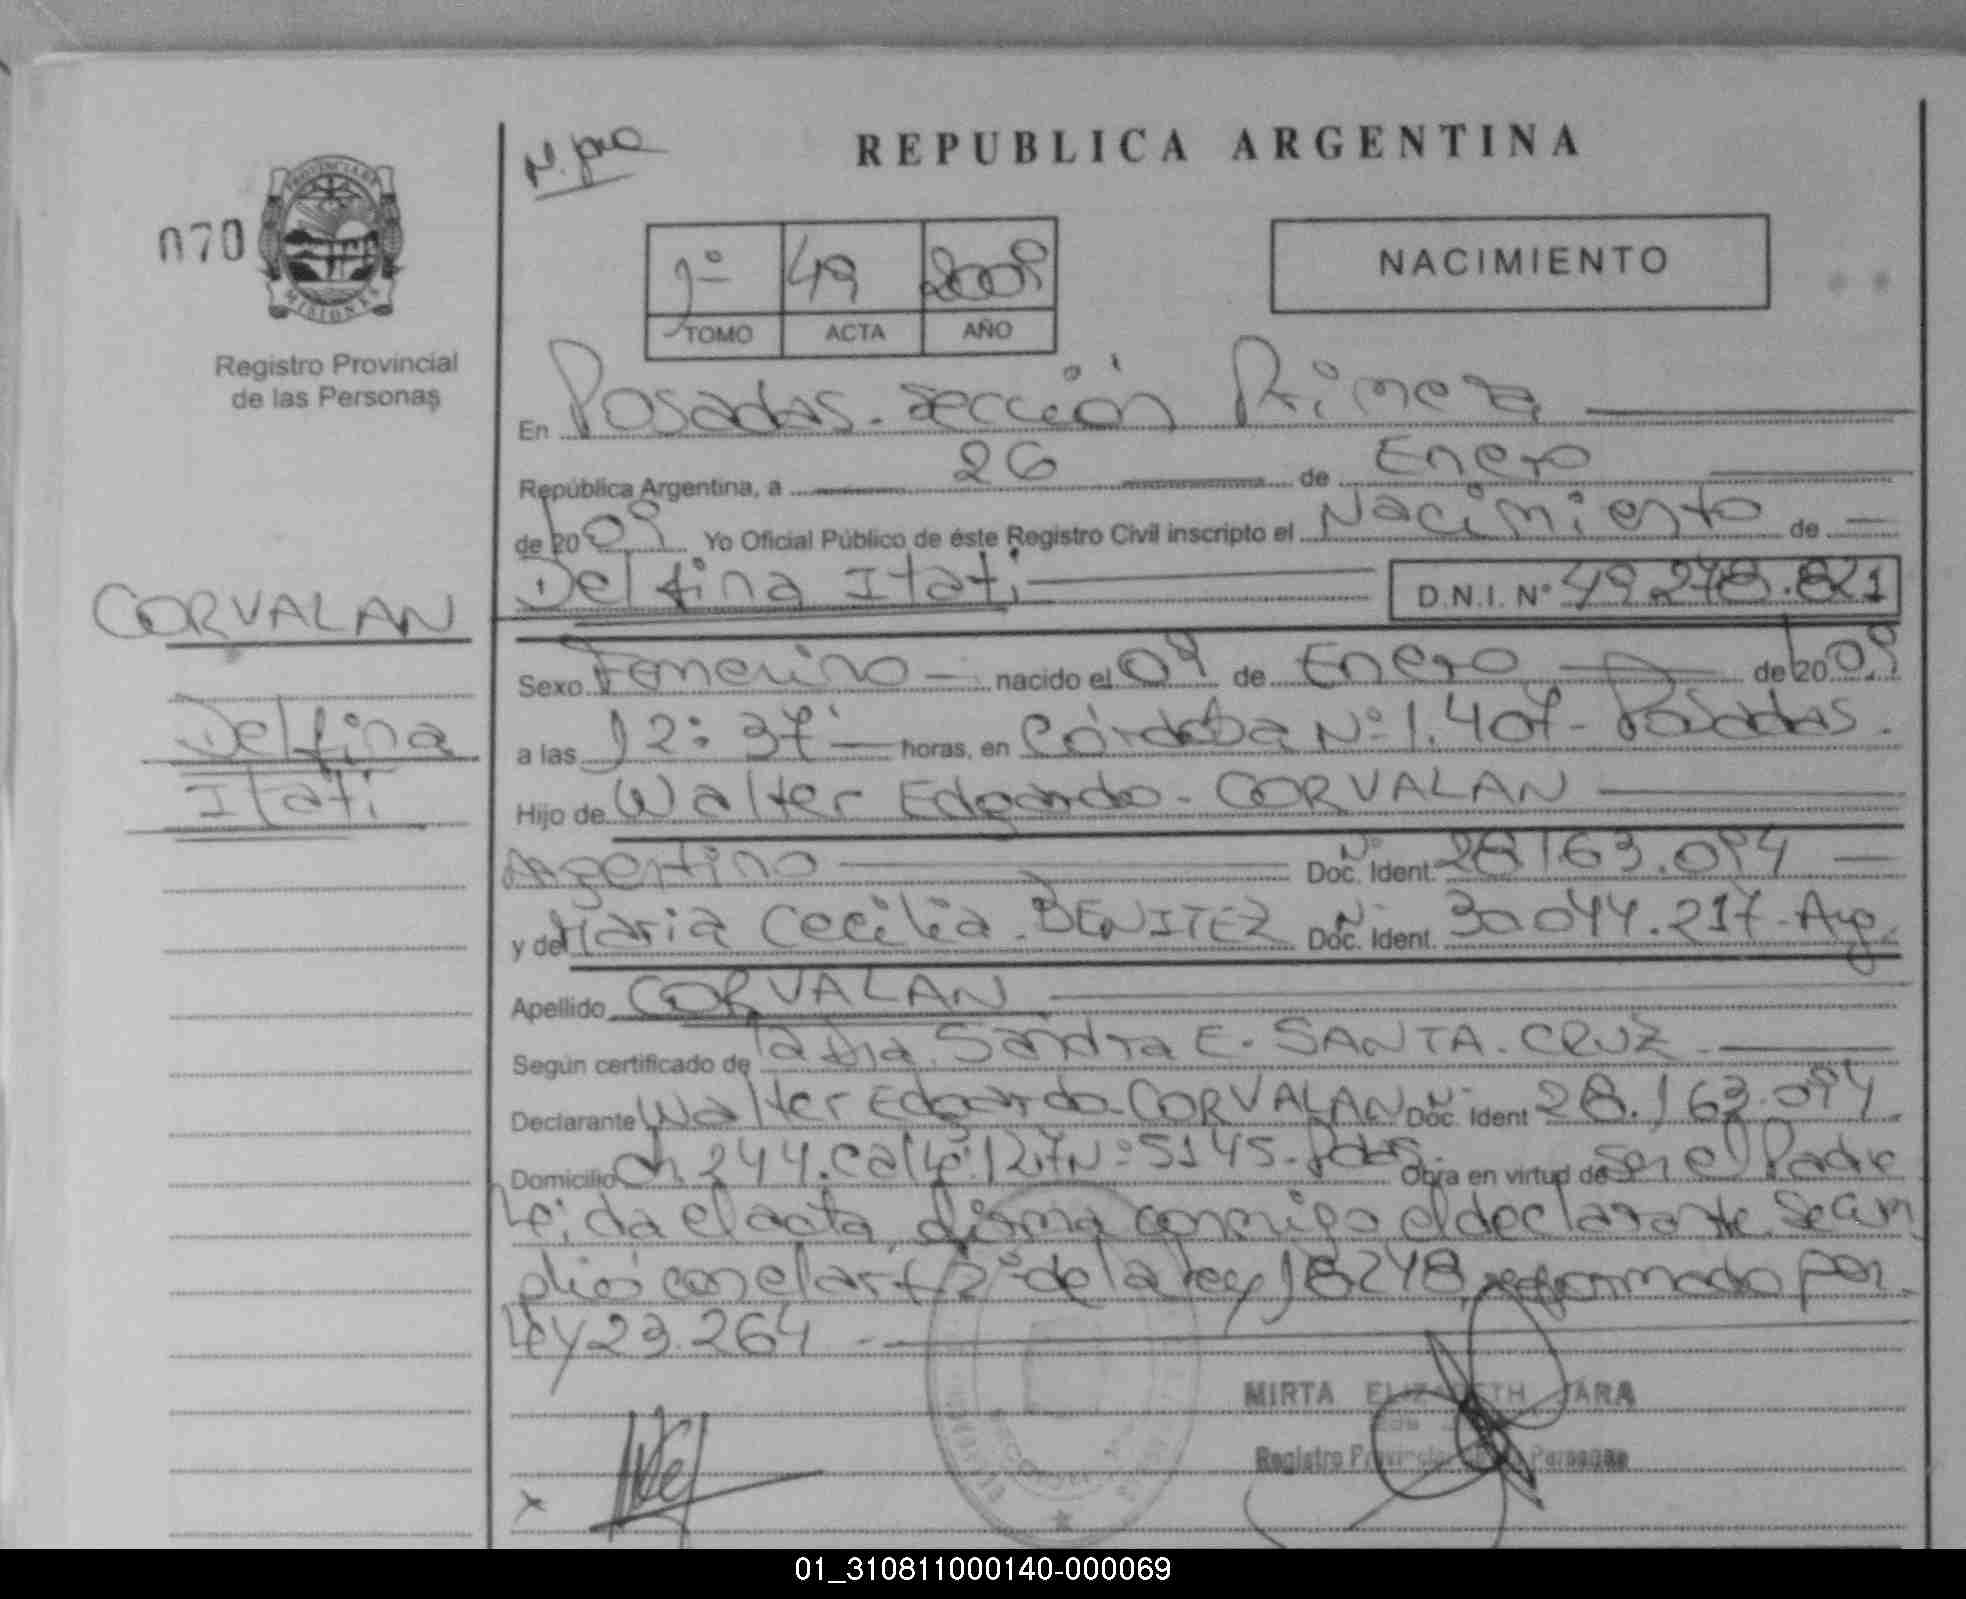 N. pno
REPUBLICA ARGENTINA
070
PROVINCIA DE
MISIONES
Registro Provincial
de las Personas
1º 49 2009
TOMO ACTA AÑO
NACIMIENTO
En Posadas. sección Primera
República Argentina, a 26 de Enero
de 2009 Yo Oficial Público de éste Registro Civil inscripto el Nacimiento de
Delfina Itati D.N.I. Nº 49.278.821
CORVALAN
Delfina
Itati
Sexo Femenino nacido el 09 de Enero de 2009
a las 12:37' horas, en Córdoba Nº 1.407 - Posadas.
Hijo de Walter Edgardo - CORVALAN
Argentino Doc. Ident. Nº 28163.094
y de Maria Cecilia - BENITEZ Doc. Ident. Nº 30044.217 - Arg.
Apellido CORVALAN
Según certificado de la Dra. Sandra E. SANTA.CRUZ
Declarante Walter Edgardo - CORVALAN Doc. Ident Nº 28.163.094
Domicilio Ch. 244. Calle 127 Nº 5145 - Pdas. Obra en virtud de Ser el Padre
Leida el acta, firma conmigo el declarante. Se cum
plió con el art 2º de la ley 18248, reformado por
Ley 23.264
MIRTA ELIZABETH JARA
Registro Provincial de las Personas
x
01_310811000140-000069